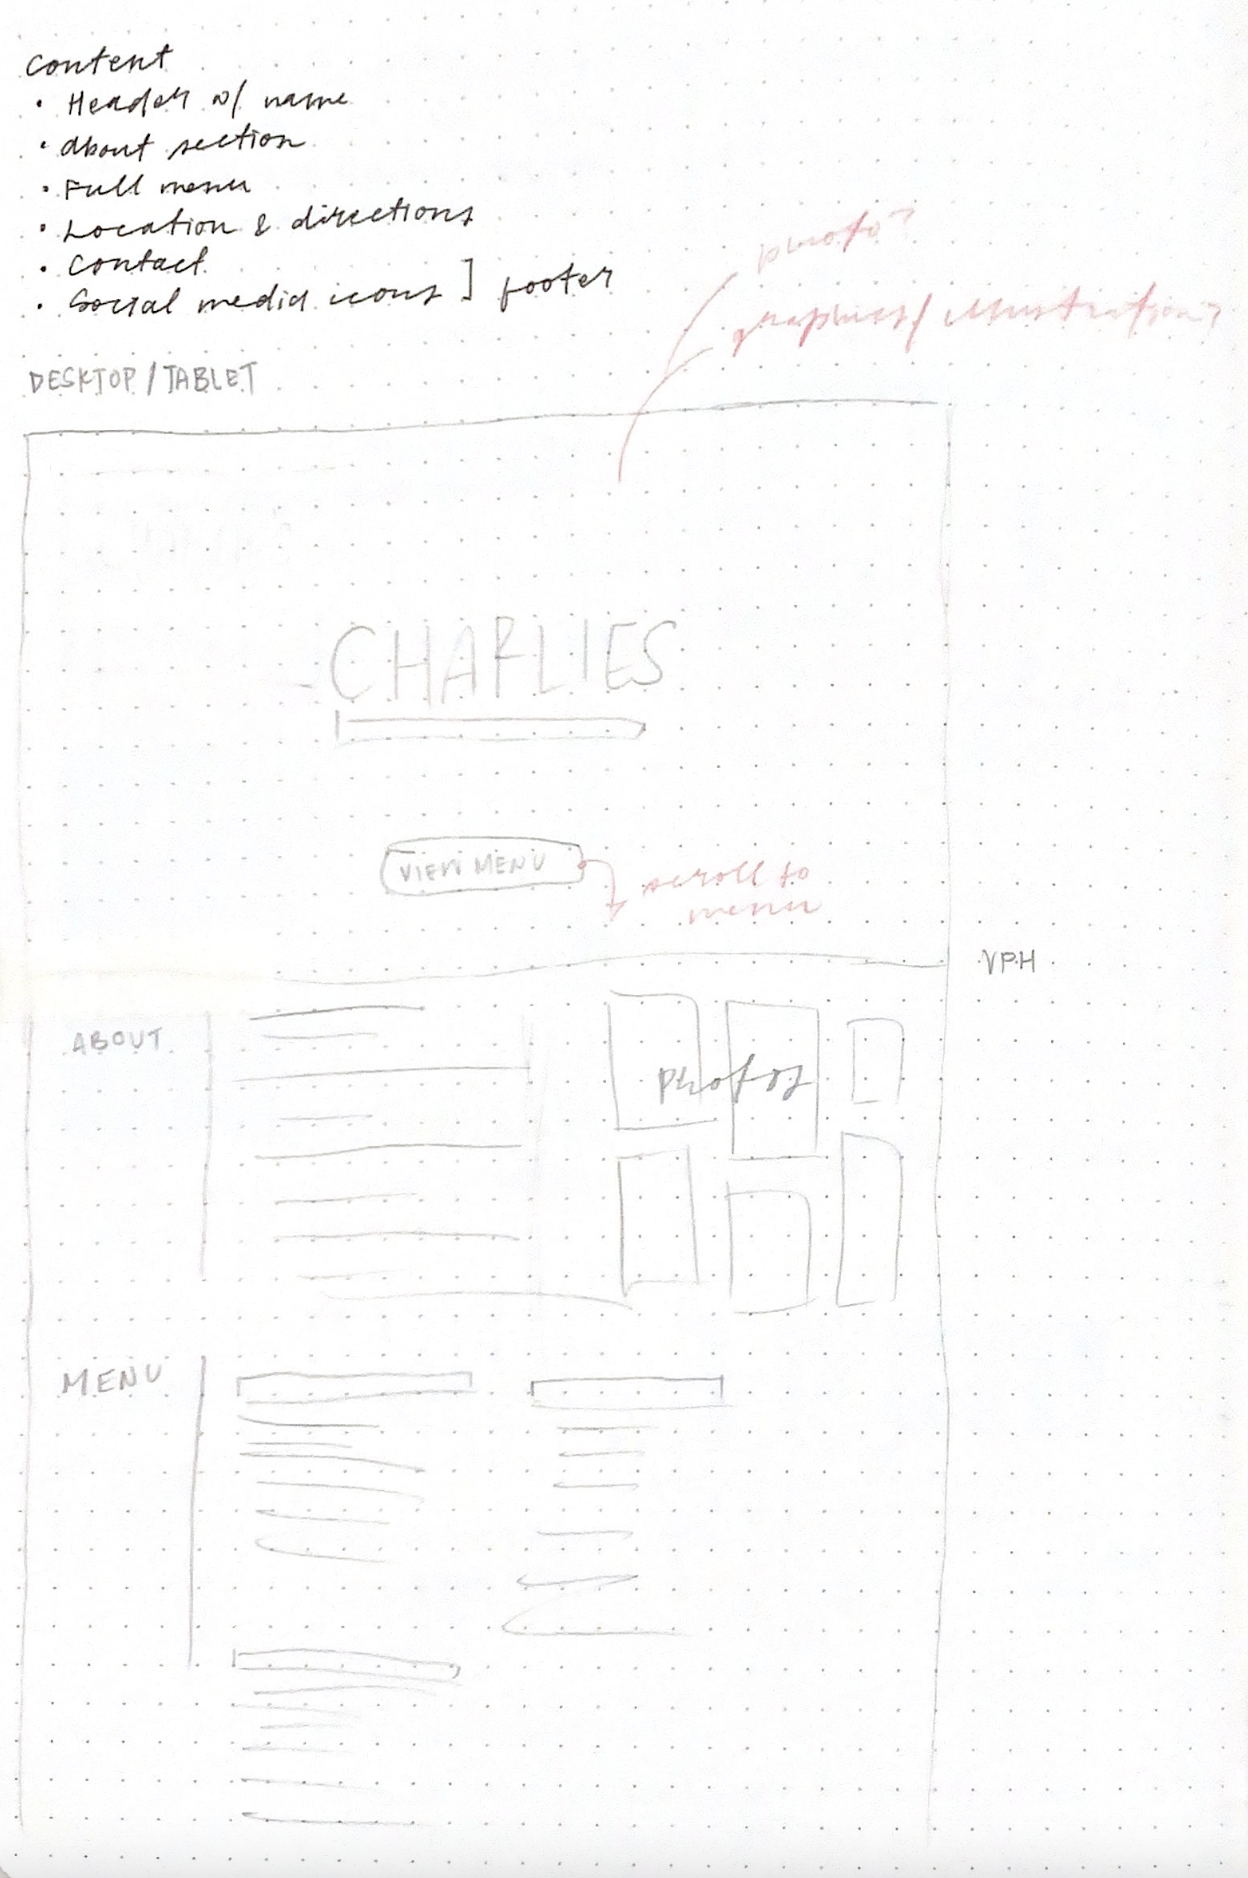 content
• Header w/ name
• About section
• Full menu
• Location & directions
• Contact
• Social media icons ] footer
photo?
graphics/illustration?
DESKTOP/TABLET
CHARLIES
VIEW MENU
scroll to
menu
VPH
ABOUT
photos
MENU